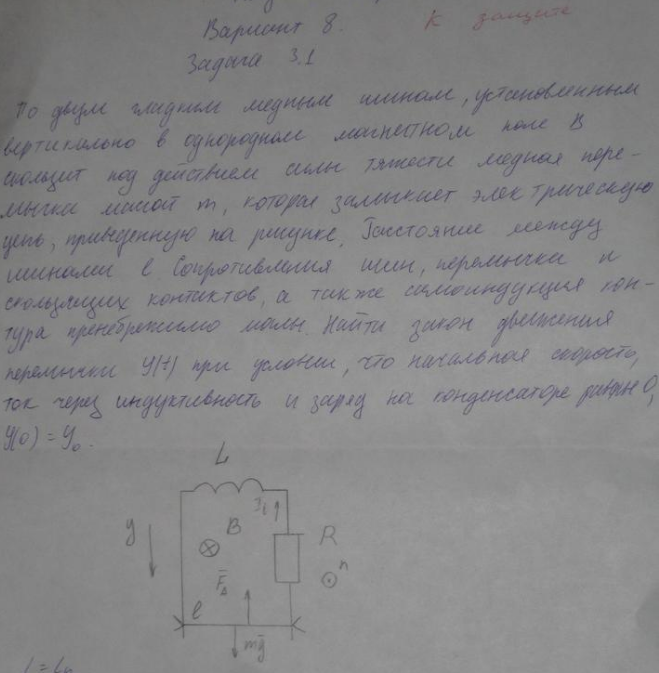 Вариант 8. К защите
Задача 3.1
По двум гладким медным шинам, установленным
вертикально в однородном магнитном поле B
скользит под действием силы тяжести медная пере-
мычка массой m, которая замыкает электрическую
цепь, приведенную на рисунке. Расстояние между
шинами l. Сопротивления шин, перемычки и
скользящих контактов, а также самоиндукция кон-
тура пренебрежимо малы. Найти закон движения
перемычки y(t) при условии, что начальная скорость,
ток через индуктивность и заряд на конденсаторе равны 0,
y(0) = y₀.
L
y B R
n
F
l
mg